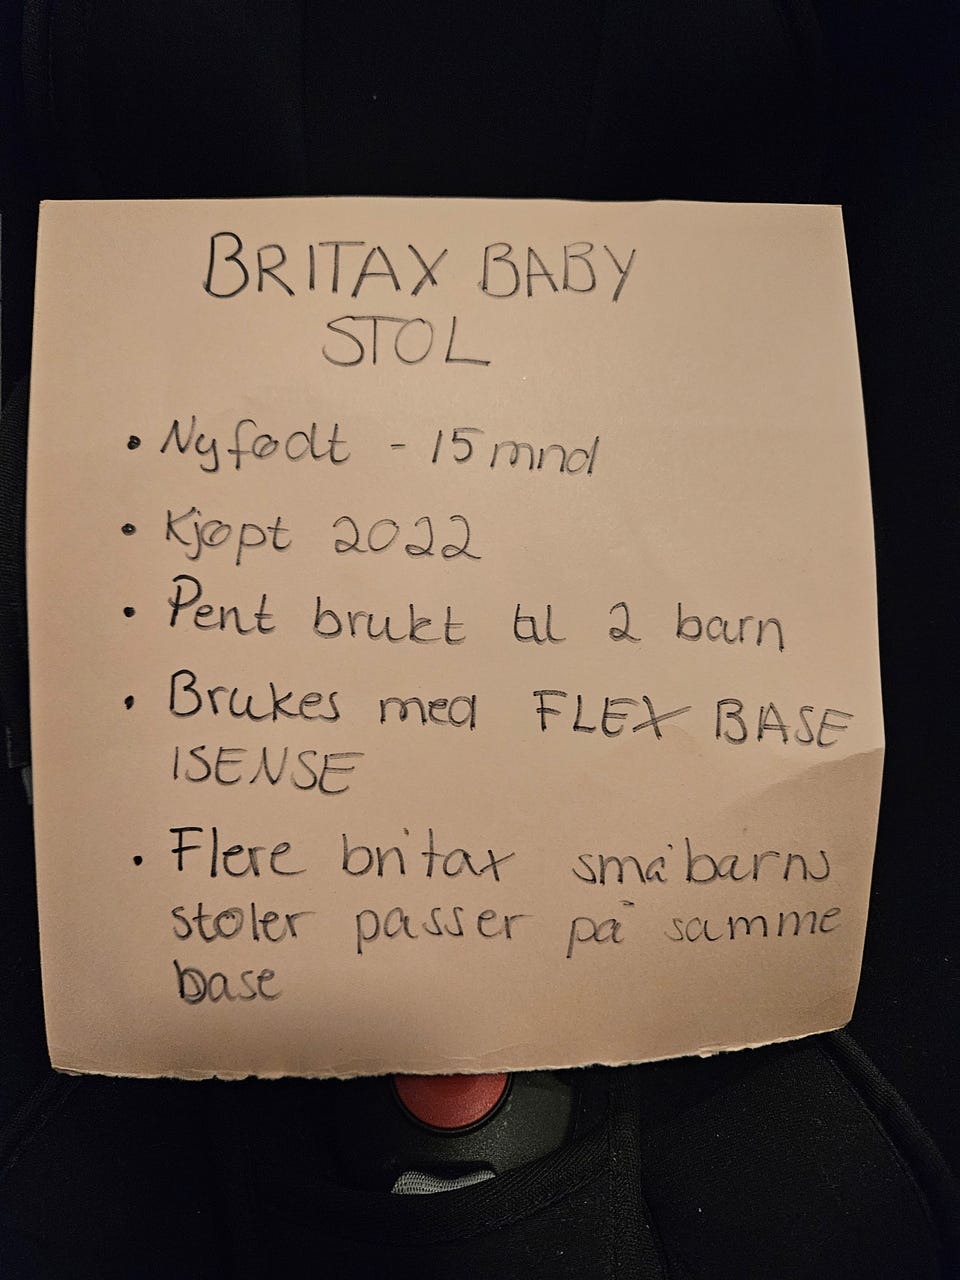 BRITAX BABY
STOL
• Nyfødt - 15 mnd
• Kjøpt 2022
• Pent brukt til 2 barn
• Brukes med FLEX BASE
ISENSE
• Flere britax småbarns
stoler passer på samme
base